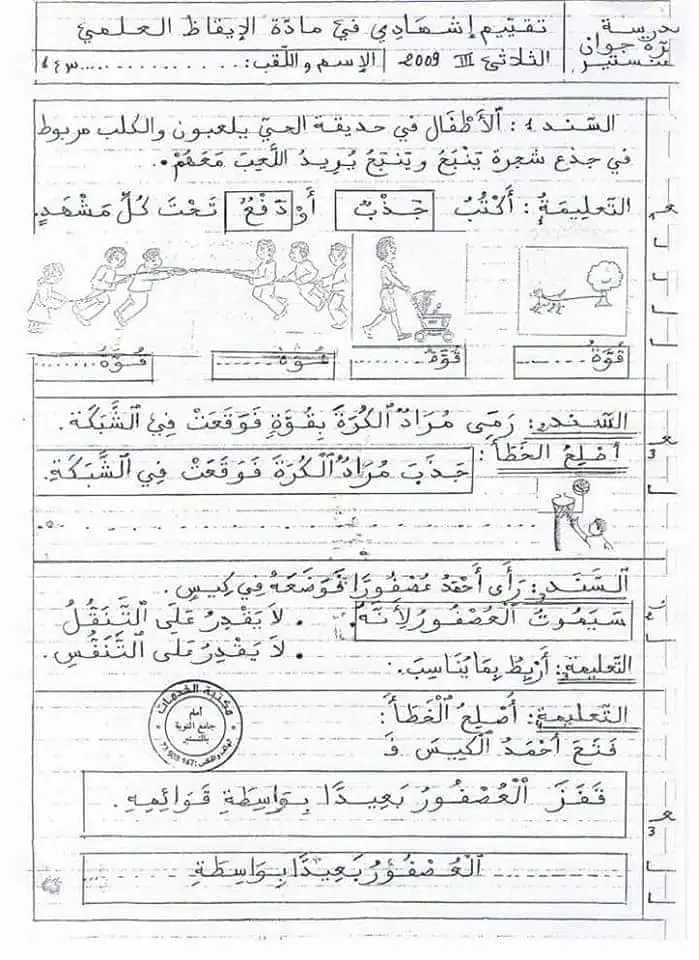 مدرسة
تقييم إشهادي في مادّة الإيقاظ العلمي
الثلاثي III 2009 الإسم واللّقب: ..............
السّند 1: الأطْفَال في حديقة الحيّ يلعبون والكلب مربوط
في جذع شجرة يَنْبَحُ ويَنْبَحُ يُريدُ اللّعِبَ مَعَهُمْ.
التّعليمةُ: أَكْتُبُ جَذْبٌ أَوْ دَفْعٌ تَحْتَ كُلِّ مَشْهَدٍ.
قُوَّةُ ........ قُوَّةُ ........ قُوَّةُ ........ قُوَّةُ ........
السّند2: رَمَى مُرَادٌ الكُرَةَ بِقُوَّةٍ فَوَقَعَتْ فِي الشَّبَكَة.
أُصْلِحُ الخَطَأَ:
جَذَبَ مُرَادٌ الْكُرَةَ فَوَقَعَتْ فِي الشَّبَكَةِ.
السَّنَد3: رَأَى أَحْمَدُ عُصْفُورًا فَوَضَعَهُ فِي كِيسٍ.
سَيَمُوتُ الْعُصْفُورُ لِأَنَّهُ • • لاَ يَقْدِرُ عَلَى التَّنَقُّلُ
• لاَ يَقْدِرُ عَلى التَّنَفُّسِ.
التّعليمة: أَرْبِطُ بِمَا يُنَاسِبُ.
التّعليمة: أُصْلِحُ الْخَطَأَ:
فَتَحَ أَحْمَدُ الْكِيسَ فَ
قَفَزَ الْعُصْفُورُ بَعِيدًا بِوَاسِطَةِ قَوَائِمِهِ.
الْعُصْفُورُ بَعِيدًا بِوَاسِطَةِ
مكتبة الخدمات
أمام
جامع التوبة